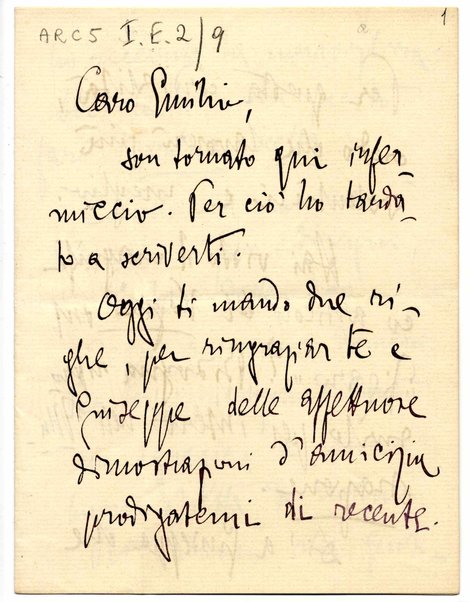 1
ARC5 I.E.2/9
Caro Emilio,
son tornato qui infer-
miccio. Per ciò ho tarda-
to a scriverti.
Oggi ti mando due ri-
ghe, per ringraziar te e
Giuseppe delle affettuose
dimostrazioni d'amicizia
prodigatemi di recente.